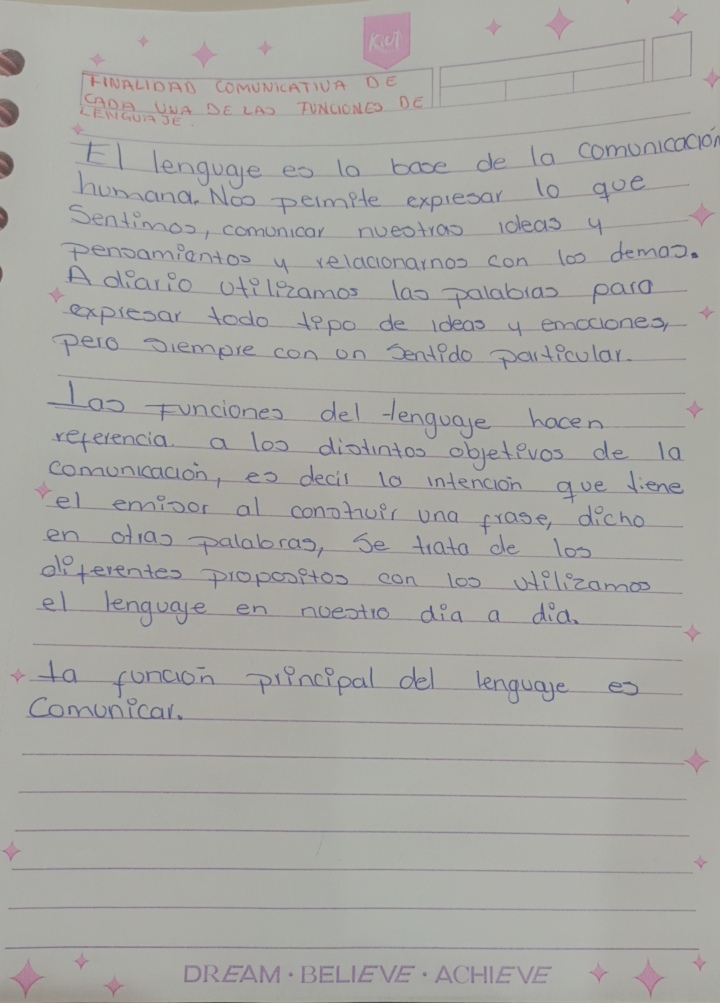 KIUT
FINALIDAD COMUNICATIVA DE
CADA UNA DE LAS FUNCIONES DE
LENGUAJE.
El lenguaje es la base de la comunicación
humana. Nos permite expresar lo que
Sentimos, comunicar nuestras ideas y
pensamientos y relacionarnos con los demas.
A diario utilizamos las palabras para
expresar todo tipo de ideas y emociones,
pero siempre con un sentido particular.
Las Funciones del lenguaje hacen
referencia a los distintos objetivos de la
comunicación, es decir la intención que tiene
el emisor al construir una frase, dicho
en otras palabras, Se trata de los
diferentes propositos con los utilizamos
el lenguaje en nuestro día a día.
La función principal del lenguaje es
Comunicar.
DREAM · BELIEVE · ACHIEVE